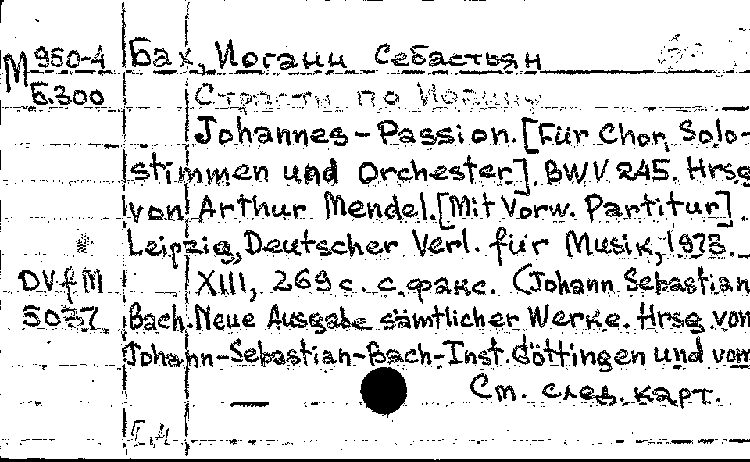 М 950-4 Бах, Иоганн Себастьян
Б.300 Страсти по Иоанну
Johannes-Passion. [Für Chor, Solo-
stimmen und Orchester]. BWV 245. Hrsg
von Arthur Mendel. [Mit Vorw. Partitur].
Leipzig, Deutscher Verl. für Musik, 1973.
DVfM XIII, 269 с. с.факс. (Johann Sebastian
5037 Bach. Neue Ausgabe sämtlicher Werke. Hrsg. vom
Johann-Sebastian-Bach-Inst. Göttingen und vom
См. след. карт.